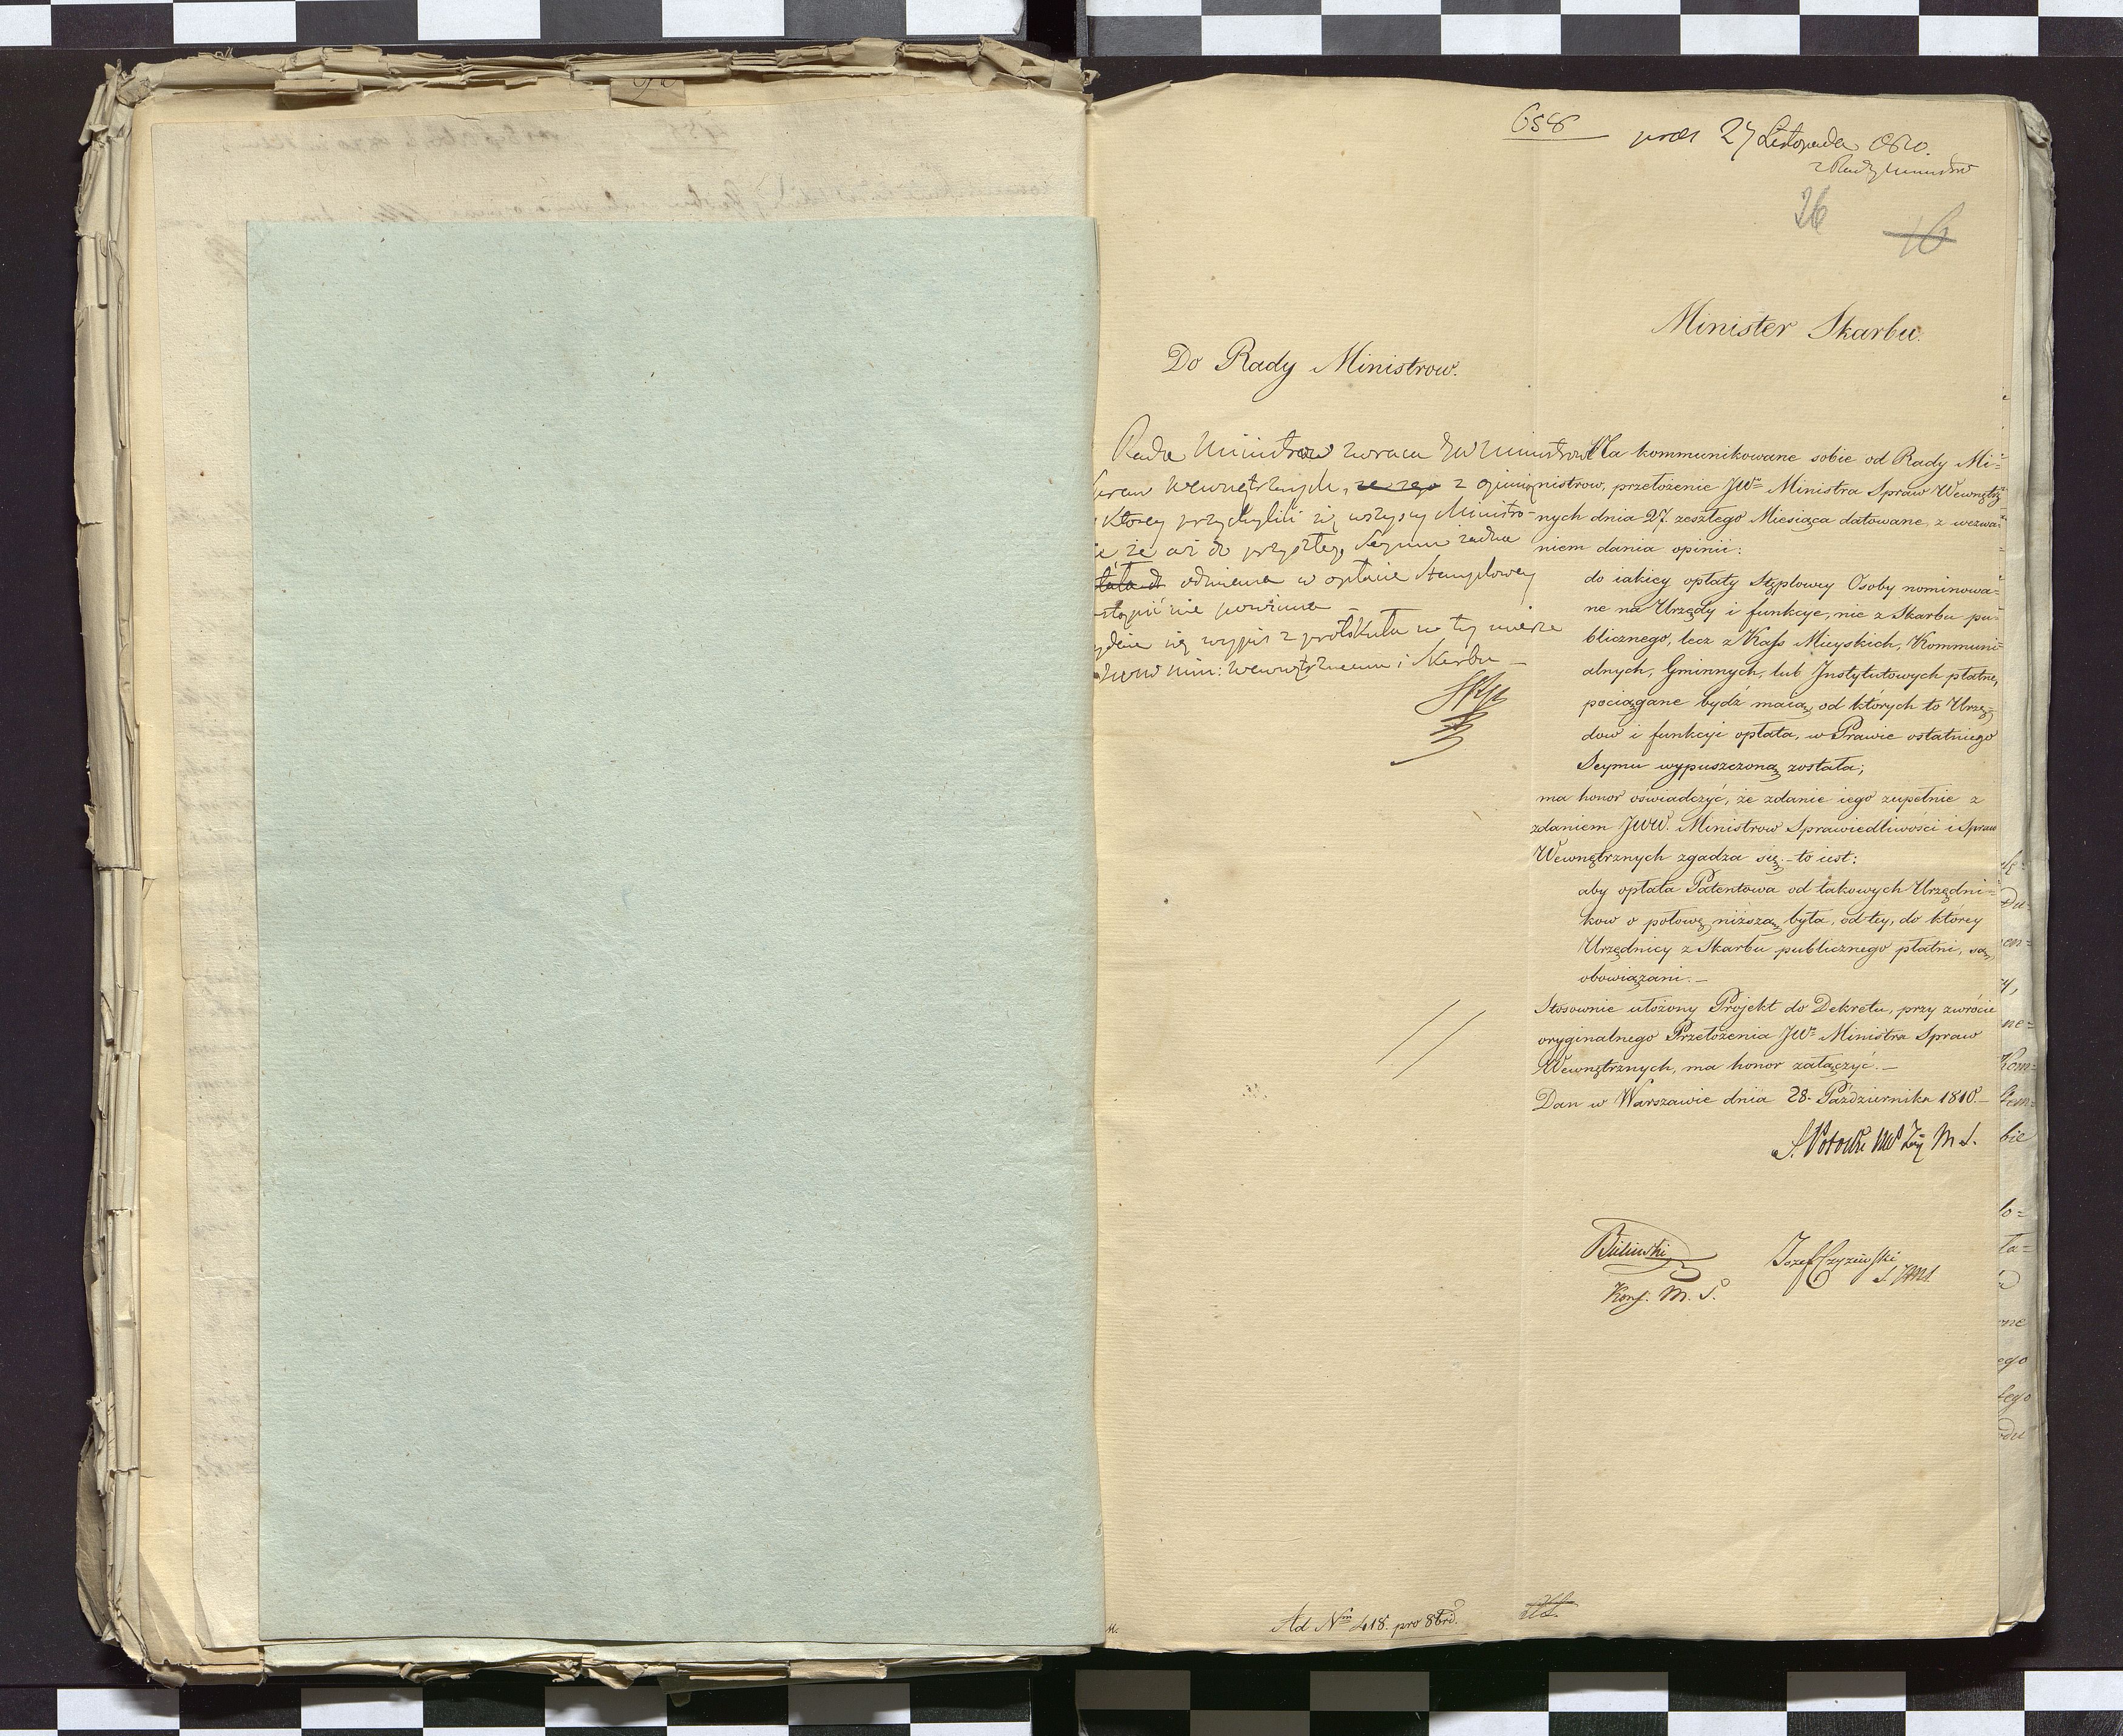 658
27 Listopada 1810.
z Rady Ministrów
26
16
Minister Skarbu.
Do Rady Ministrow.
Rada Ministrow zwraca JW Ministrowi
Spraw Wewnętrznych, z opinią
ktorey przychylili się wszyscy Ministro-
ie że aż do przyszłego Seymu żadna
odmiana w opłacie Stemplowey
nastąpić nie powinna –
się wypis z protokułu w tey mierze
Wewnętrznemu i Skarbu –
Na kommunikowane sobie od Rady Mi-
nistrow, przełożenie JWo Ministra Spraw Wewnętrz-
nych dnia 27. zeszłego Miesiąca datowane, z wezwa-
niem dania opinii:
do iakiey opłaty Stęplowey Osoby nominowa-
ne na Urzędy i funkcye, nie z Skarbu pu-
blicznego, lecz z Kass Mieyskich, Kommuni-
alnych, Gminnych, lub Instytutowych płatne,
pociągane bydź maią, od których to Urzę-
dow i funkcyi opłata, w Prawie ostatniego
Seymu wypuszczoną została;
ma honor oświadczyć, że zdanie iego zupełnie z
zdaniem JWW. Ministrow Sprawiedliwości i Spraw
Wewnętrznych zgadza się – to iest:
aby opłata Patentowa od takowych Urzędni-
kow o połowę niższą była, od tey, do którey
Urzędnicy z Skarbu publicznego płatni, są
obowiązani. –
Stosownie ułożony Projekt do Dekretu, przy zwrócie
oryginalnego Przełożenia JWo Ministra Spraw
Wewnętrznych, ma honor załączyć. –
Dan w Warszawie dnia 28. Października 1810. –
S. Potocki M. S.
Bieliński
Józef Czyżewski
M. S.
Ad Nm 418. pro 8bri.